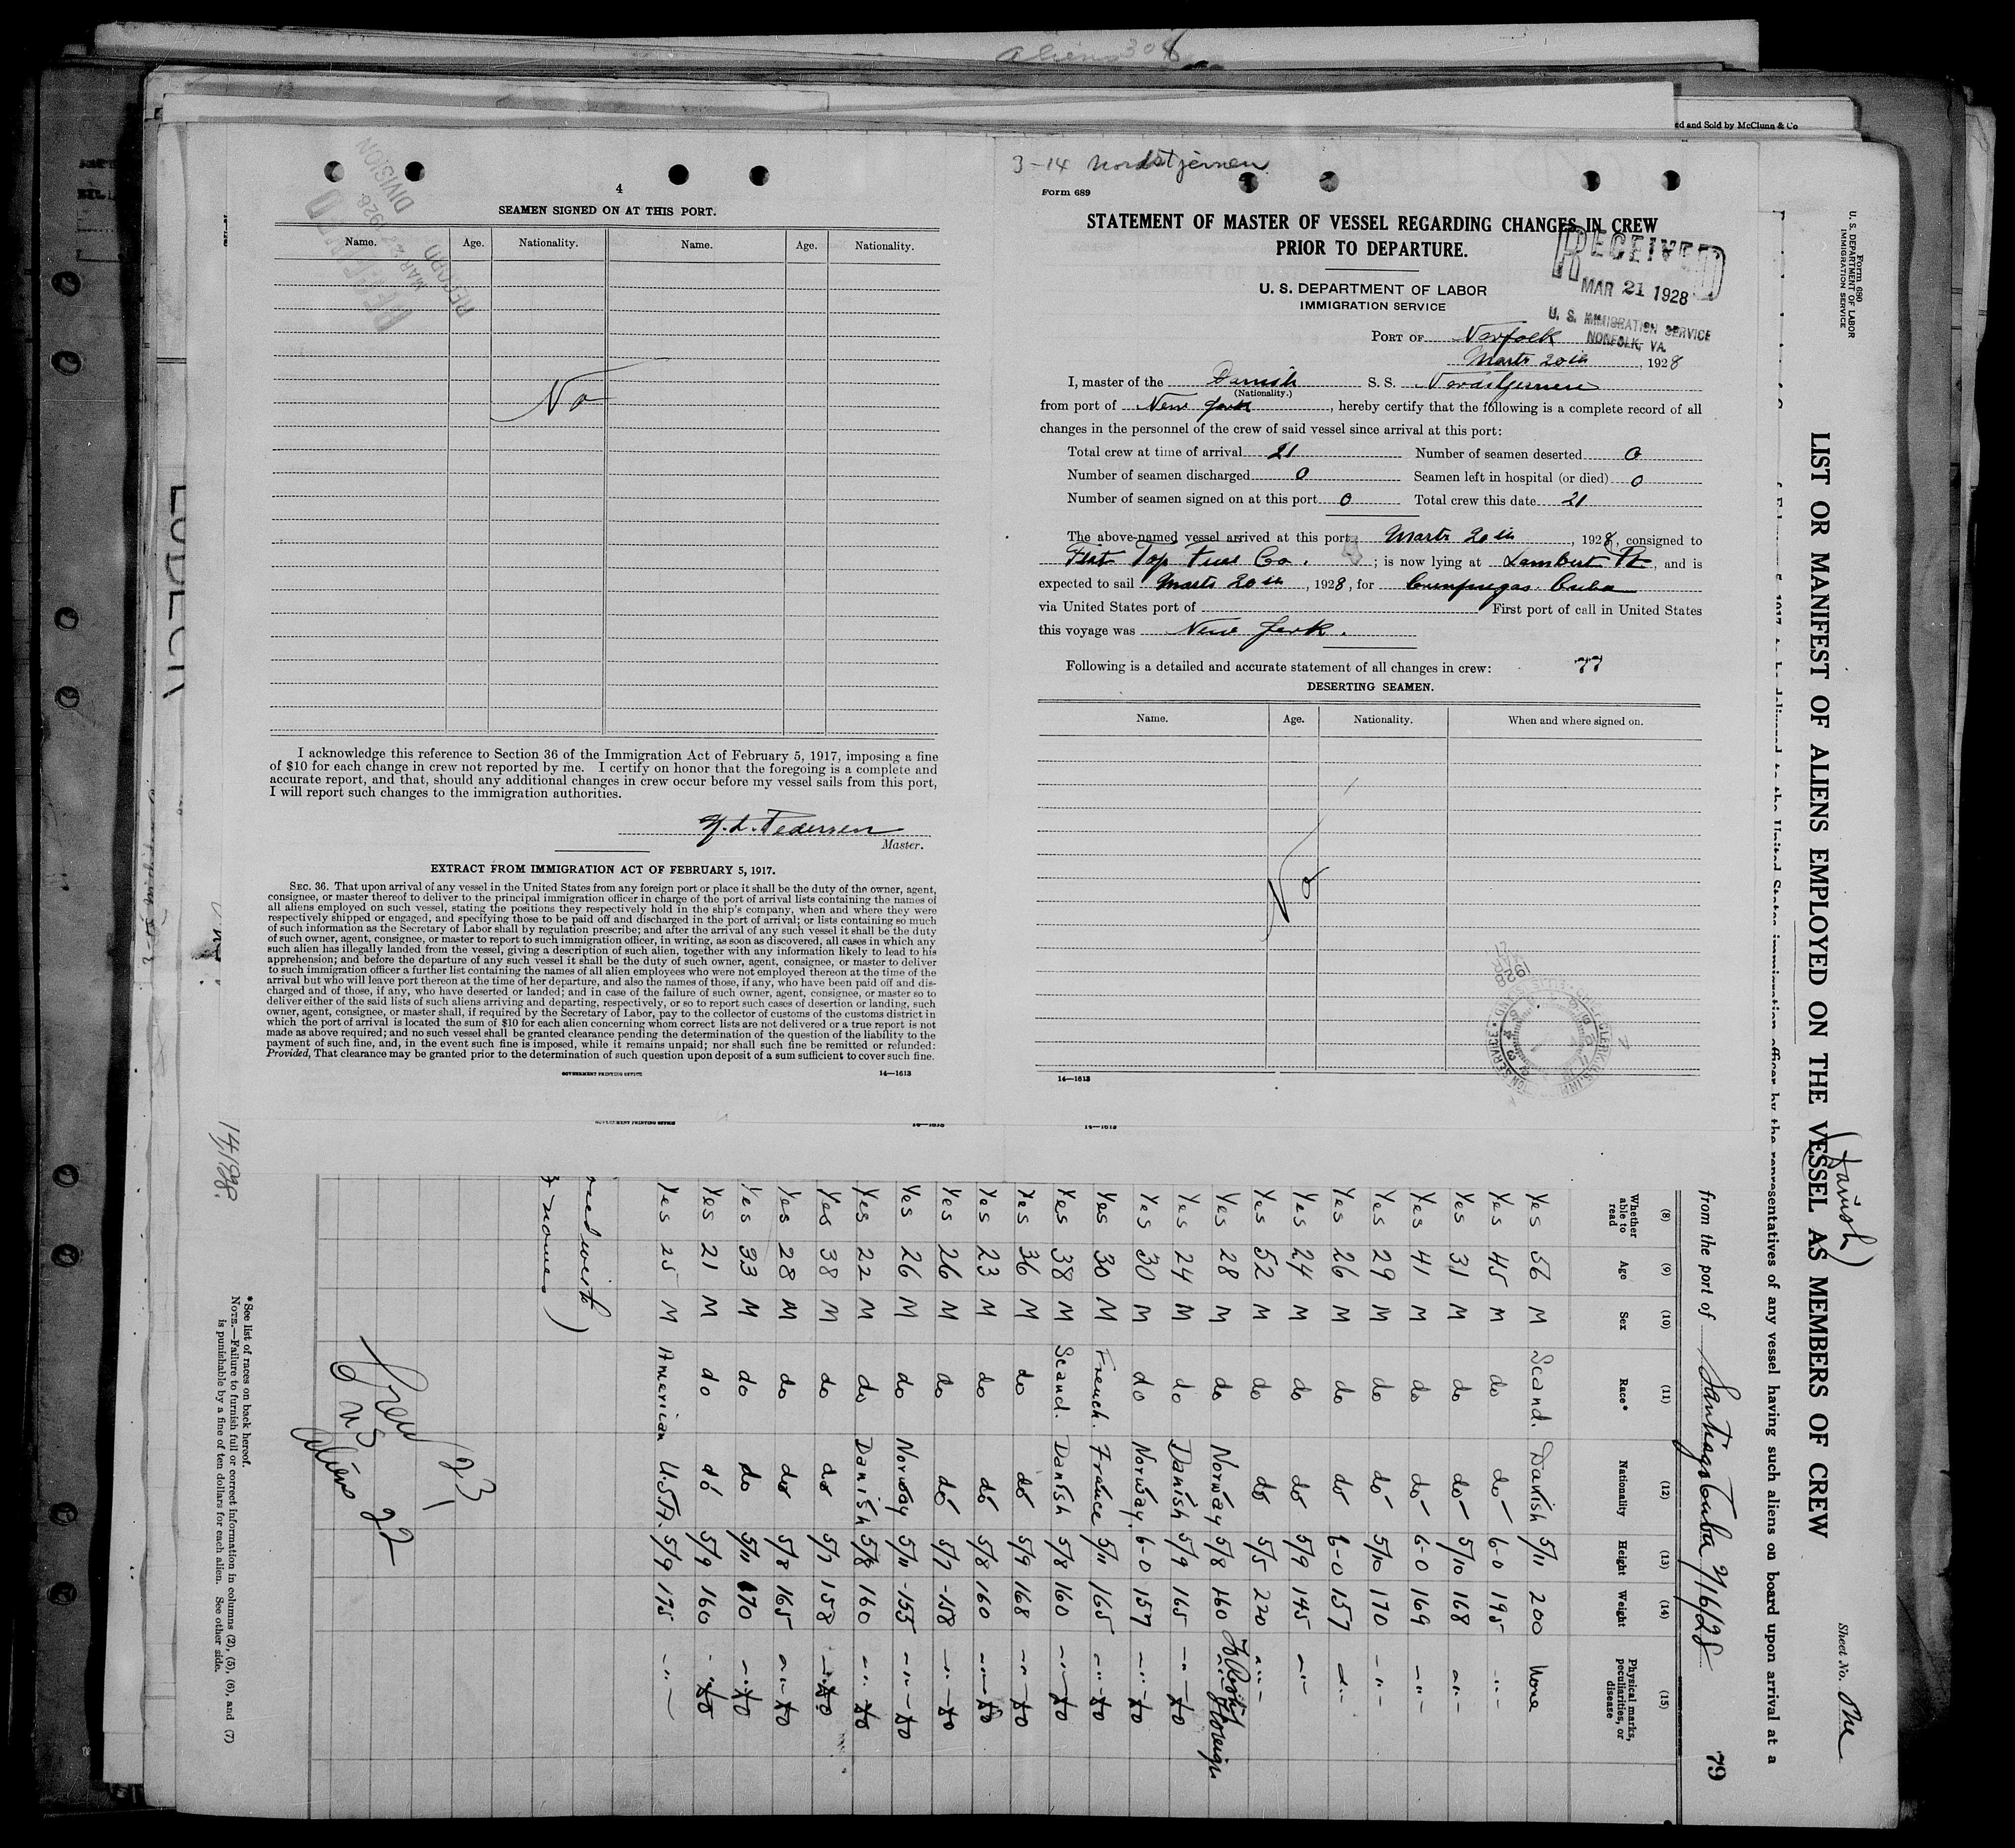 Aliens 308
ed and Sold by McClung & Co
4
SEAMEN SIGNED ON AT THIS PORT.
Name. Age. Nationality. Name. Age. Nationality.
No
I acknowledge this reference to Section 36 of the Immigration Act of February 5, 1917, imposing a fine
of $10 for each change in crew not reported by me. I certify on honor that the foregoing is a complete and
accurate report, and that, should any additional changes in crew occur before my vessel sails from this port,
I will report such changes to the immigration authorities.
Pedersen
Master.
EXTRACT FROM IMMIGRATION ACT OF FEBRUARY 5, 1917.
SEC. 36. That upon arrival of any vessel in the United States from any foreign port or place it shall be the duty of the owner, agent,
consignee, or master thereof to deliver to the principal immigration officer in charge of the port of arrival lists containing the names of
all aliens employed on such vessel, stating the positions they respectively hold in the ship's company, when and where they were
respectively shipped or engaged, and specifying those to be paid off and discharged in the port of arrival; or lists containing so much
of such information as the Secretary of Labor shall by regulation prescribe; and after the arrival of any such vessel it shall be the duty
of such owner, agent, consignee, or master to report to such immigration officer, in writing, as soon as discovered, all cases in which any
such alien has illegally landed from the vessel, giving a description of such alien, together with any information likely to lead to his
apprehension; and before the departure of any such vessel it shall be the duty of such owner, agent, consignee, or master to deliver
to such immigration officer a further list containing the names of all alien employees who were not employed thereon at the time of the
arrival but who will leave port thereon at the time of her departure, and also the names of those, if any, who have been paid off and dis-
charged and of those, if any, who have deserted or landed; and in case of the failure of such owner, agent, consignee, or master so to
deliver either of the said lists of such aliens arriving and departing, respectively, or so to report such cases of desertion or landing, such
owner, agent, consignee, or master shall, if required by the Secretary of Labor, pay to the collector of customs of the customs district in
which the port of arrival is located the sum of $10 for each alien concerning whom correct lists are not delivered or a true report is not
made as above required; and no such vessel shall be granted clearance pending the determination of the question of the liability to the
payment of such fine, and, in the event such fine is imposed, while it remains unpaid; nor shall such fine be remitted or refunded:
Provided, That clearance may be granted prior to the determination of such question upon deposit of a sum sufficient to cover such fine.
GOVERNMENT PRINTING OFFICE 14—1613
3-14 Nordstjernen
Form 689
STATEMENT OF MASTER OF VESSEL REGARDING CHANGES IN CREW
PRIOR TO DEPARTURE.
RECEIVED
MAR 21 1928
U. S. IMMIGRATION SERVICE
NORFOLK, VA.
U. S. DEPARTMENT OF LABOR
IMMIGRATION SERVICE
PORT OF Norfolk
Marts 20th, 1928
I, master of the Danish S. S. Nordstjernen
(Nationality.)
from port of New York, hereby certify that the following is a complete record of all
changes in the personnel of the crew of said vessel since arrival at this port:
Total crew at time of arrival 21 Number of seamen deserted 0
Number of seamen discharged 0 Seamen left in hospital (or died) 0
Number of seamen signed on at this port 0 Total crew this date 21
The above-named vessel arrived at this port Marts 20th, 1928, consigned to
Flat Top Fuel Co.; is now lying at Lambert Pt, and is
expected to sail Marts 20th, 1928, for Cienfuegos Cuba
via United States port of First port of call in United States
this voyage was New York.
Following is a detailed and accurate statement of all changes in crew: 77
DESERTING SEAMEN.
Name. Age. Nationality. When and where signed on.
No
MAR 1928
14—1613
GOVERNMENT PRINTING OFFICE 14—1613 14—1613
Form 680
U. S. DEPARTMENT OF LABOR
IMMIGRATION SERVICE
Sheet No. One
(Danish)
LIST OR MANIFEST OF ALIENS EMPLOYED ON THE VESSEL AS MEMBERS OF CREW
to be delivered to the United States immigration officer by the representatives of any vessel having such aliens on board upon arrival at a
from the port of Santiago Cuba 2/16/28 79
(8) (9) (10) (11) (12) (13) (14) (15)
Whether able to read Age Sex Race* Nationality Height Weight Physical marks, peculiarities, or disease
Yes 56 M Scand. Danish 5/11 200 None
Yes 45 M do do 6-0 195 -"-
Yes 31 M do do 5/10 168 -"-
Yes 41 M do do 6-0 169 -"-
Yes 29 M do do 5/10 170 -"-
Yes 26 M do do 6-0 157 -"-
Yes 24 M do do 5/9 145 -"-
Yes 52 M do do 5/5 220 -"-
Yes 28 M do Norway 5/8 160
Yes 24 M do Danish 5/9 165 -"- do
Yes 30 M do Norway. 6-0 157 -"- do
Yes 30 M French. France 5/11 165 -"- do
Yes 38 M Scand. Danish 5/8 160 -"- do
Yes 36 M do do 5/9 168 -"- do
Yes 23 M do do 5/8 160 -"- do
Yes 26 M do do 5/7 158 -"- do
Yes 26 M do Norway 5/11 155 -"- do
Yes 22 M do Danish 5/8 160 -"- do
Yes 38 M do do 5/7 158 -"- do
Yes 28 M do do 5/8 165 -"- do
Yes 33 M do do 5/11 170 -"- do
Yes 21 M do do 5/9 160 -"- do
Yes 25 M American U.S.A. 5/9 175 -"-
names)
Crew 23
US 1
Aliens 22
*See list of races on back hereof.
NOTE.—Failure to furnish full or correct information in columns (2), (5), (6), and (7)
is punishable by a fine of ten dollars for each alien. See other side.